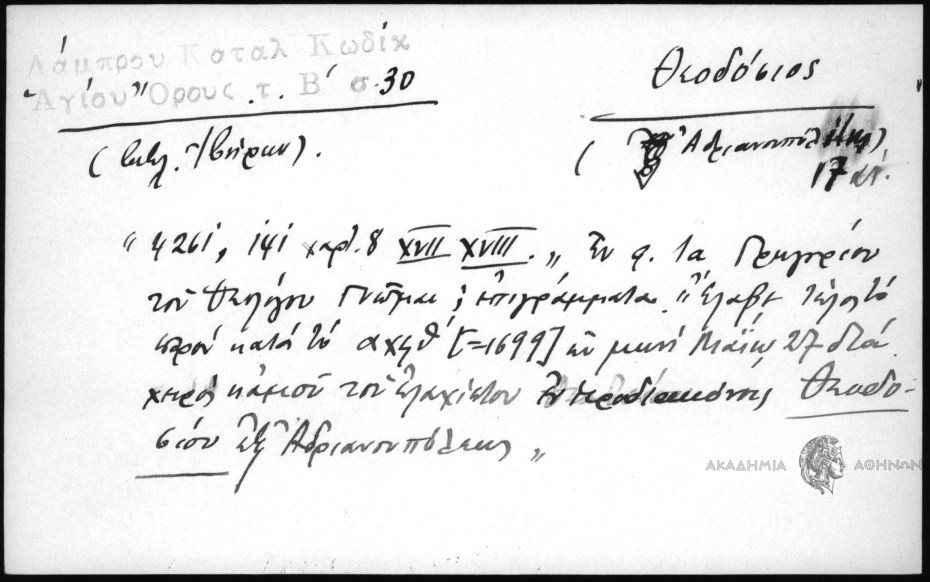 Λάμπρου Καταλ Κωδίκ
Ἁγίου Ὄρους τ. Β΄ σ. 30
Θεοδόσιος
(βιβλ. Ἰβήρων).
( Ἀδριανουπόλ
17 αἰ.
"4261, 141 χαρτ. 8 XVII XVIII. „ Ἐν φ. 1α Γρηγορίου
τοῦ Θεολόγου Γνῶμαι ἐπιγράμματα. "Ἔλαβε τέλος τὸ
παρὸν κατὰ τὸ αχϟθ΄ [=1699] ἐν μηνὶ Μαΐῳ 27 διὰ
χειρὸς κἀμοῦ τοῦ ἐλαχίστου Ἱεροδιακόνου Θεοδο-
σίου ἐξ Ἀδριανουπόλεως „
ΑΚΑΔΗΜΙΑ ΑΘΗΝΩΝ